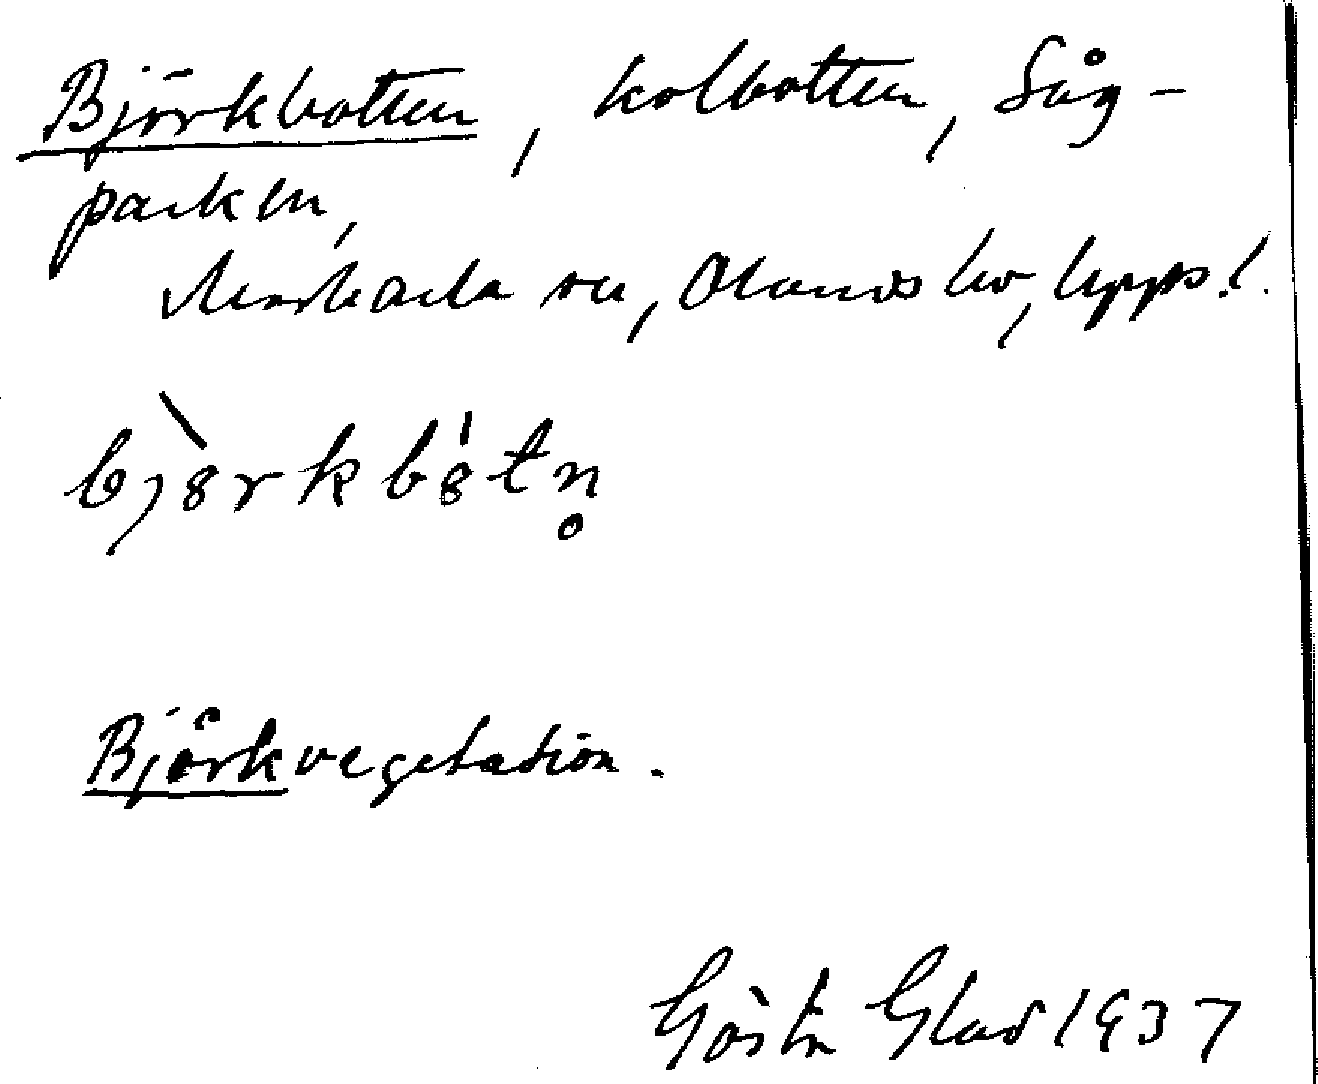 Björkbotten, kolbotten, Såg-
parken,
sn, Olands hd, Uppl.
bjòrkbótn̥
Björkvegetation.
Gösta Glad 1937